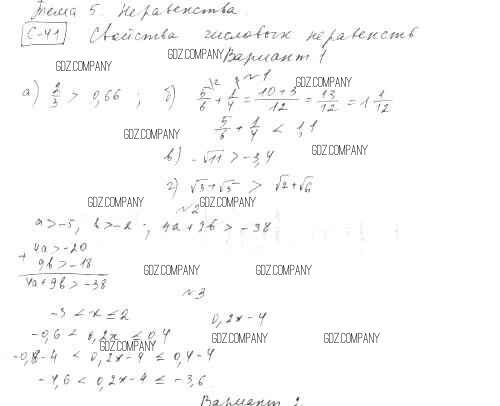 Тема 5. Неравенства.
С-41 Свойства числовых неравенств
GDZ.COMPANY
Вариант 1
GDZ.COMPANY
№1
GDZ.COMPANY
а) 2/3 > 0,66 ; б) 5/6 + 1/4 = 10+3/12 = 13/12 = 1 1/12
GDZ.COMPANY
5/6 + 1/4 < 1,1
в) -√11 > -3,4
GDZ.COMPANY
г) √3+√5 > √2+√6
GDZ.COMPANY
№2
GDZ.COMPANY
a > -5, b > -2 ; 4a + 9b > -38
4a > -20
+
9b > -18
4a + 9b > -38
GDZ.COMPANY GDZ.COMPANY
№3
-3 < x ≤ 2
0,2x - 4
-0,6 < 0,2x ≤ 0,4
GDZ.COMPANY GDZ.COMPANY GDZ.COMPANY
-4 < 0,2x - 4 ≤ 0,4 - 4
-4,6 < 0,2x - 4 ≤ -3,6
Вариант 2